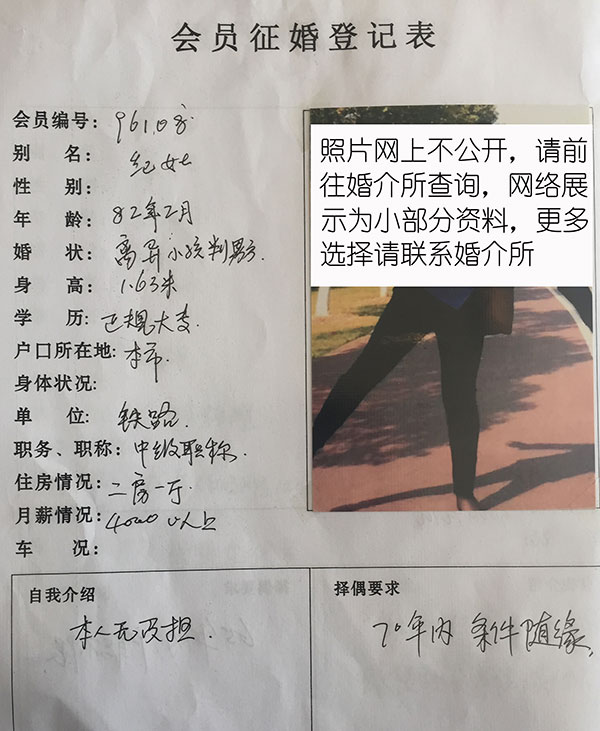 会员征婚登记表
会员编号: 96108
别 名: 纪女士
性 别:
年 龄: 82年2月
婚 状: 离异小孩判男方
身 高: 1.63米
学 历: 正规大专.
户口所在地: 本市.
身体状况:
单 位: 铁路.
职务、职称: 中级职称.
住房情况: 二房一厅.
月薪情况: 4000以上
车 况:
照片网上不公开，请前
往婚介所查询，网络展
示为小部分资料，更多
选择请联系婚介所
自我介绍
本人无负担.
择偶要求
70年内 条件随缘,